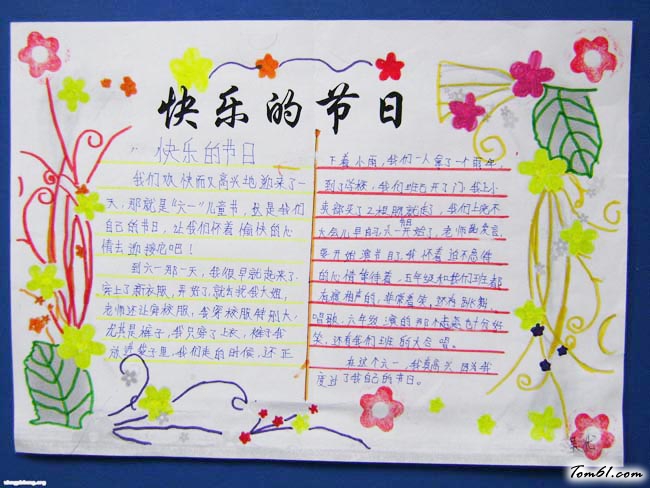 快乐的节日
快乐的节日
我们欢快而又高兴地迎来了一
天,那就是“六一”儿童节,这是我们
自己的节日,让我们怀着愉快的心
情去迎接它吧!
到六一那一天,我很早就起来了.
穿上了新衣服,弄好了,就去找我大姐,
老师还让穿校服,我穿校服特别大,
尤其是裤子,我只穿了上衣,裤子我
放进袋子里,我们走的时候,还正
下着小雨,我们一人拿了一个雨伞,
到了学校,我们班已开了门,我上小
卖部买了2根就走了,我们上
大会儿早自习六一开始了,老师发言
开始演节目了,我怀着迫不急待
的心情等待着,五年级和我们班都
有演相声的,非常着笑,还有跳舞,
唱歌,六年级演的那个十分好
笑,还有我们班的大合唱。
在这个六一,我真高兴,因为我
度过了我自己的节日。
Tom61.com